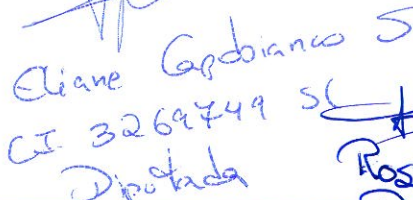 Eliane Capobianco S
CI 3269749 SC
Diputada
Ros